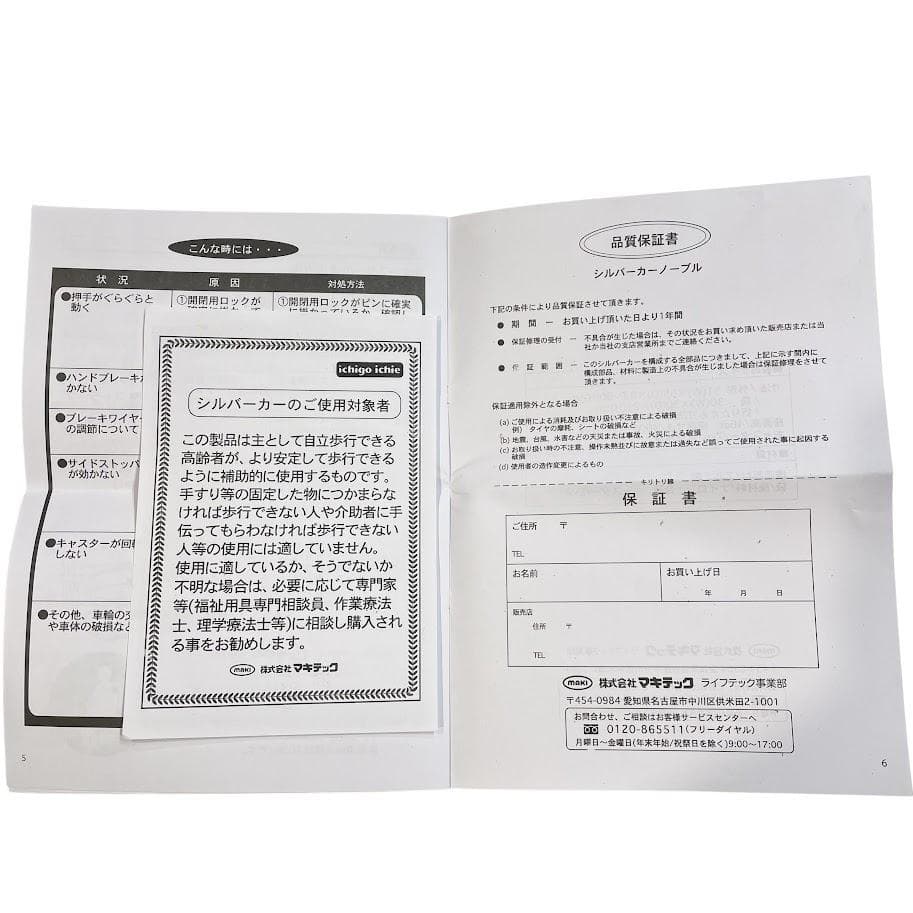 こんな時には・・・
状況 原因 対処方法
●押手がぐらぐらと ①開閉用ロックが ①開閉用ロックがピンに確実
動く
●ハンドブレーキが
かない
●ブレーキワイヤー
の調節について
●サイドストッパ
が効かない
●キャスターが回転
しない
●その他、車輪の交
や車体の破損など
5
ichigo ichie
シルバーカーのご使用対象者
この製品は主として自立歩行できる
高齢者が、より安定して歩行できる
ように補助的に使用するものです。
手すり等の固定した物につかまらな
ければ歩行できない人や介助者に手
伝ってもらわなければ歩行できない
人等の使用には適していません。
使用に適しているか、そうでないか
不明な場合は、必要に応じて専門家
等(福祉用具専門相談員、作業療法
士、理学療法士等)に相談し購入され
る事をお勧めします。
maki 株式会社 マキテック
品質保証書
シルバーカーノーブル
下記の条件により品質保証させて頂きます。
● 期間 ー お買い上げ頂いた日より1年間
● 保証修理の受付 ー 不具合が生じた場合は、その状況をお買い求め頂いた販売店または当
社か当社の支店営業所までご連絡ください。
● 保証範囲 ー このシルバーカーを構成する全部品につきまして、上記に示す間内に
構成部品、材料に製造上の不具合が生じました場合は保証修理をさせて
頂きます。
保証適用除外となる場合
(a) ご使用による消耗及びお取り扱い不注意による破損
例) タイヤの摩耗、シートの破損など
(b) 地震、台風、水害などの天災または事故、火災による破損
(c) お取り扱い時の不注意、操作未熟並びに故意または過失など誤ってご使用された事に起因する
破損
(d) 使用者の造作変更によるもの
キリトリ線
保証書
ご住所 〒
TEL
お名前 お買い上げ日
年 月 日
販売店
住所 〒
TEL
maki 株式会社 マキテック ライフテック事業部
〒454-0984 愛知県名古屋市中川区供米田2-1001
お問合わせ、ご相談はお客様サービスセンターへ
0120-865511(フリーダイヤル)
月曜日～金曜日(年末年始/祝祭日を除く)9:00～17:00
6